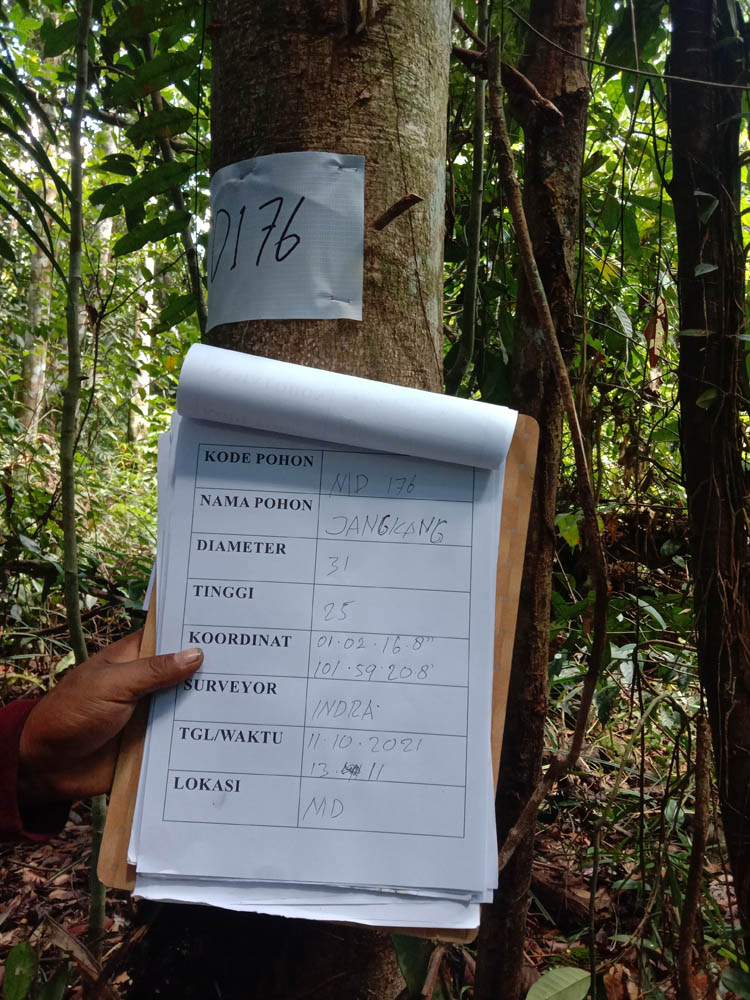 D176
KODE POHON MD 176
NAMA POHON JANGKANG
DIAMETER 31
TINGGI 25
KOORDINAT 01.02.16.8"
101.59.20.8'
SURVEYOR INDRA
TGL/WAKTU 11.10.2021
13. 11
LOKASI MD